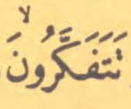 تَتَفَكَّرُونَۙ